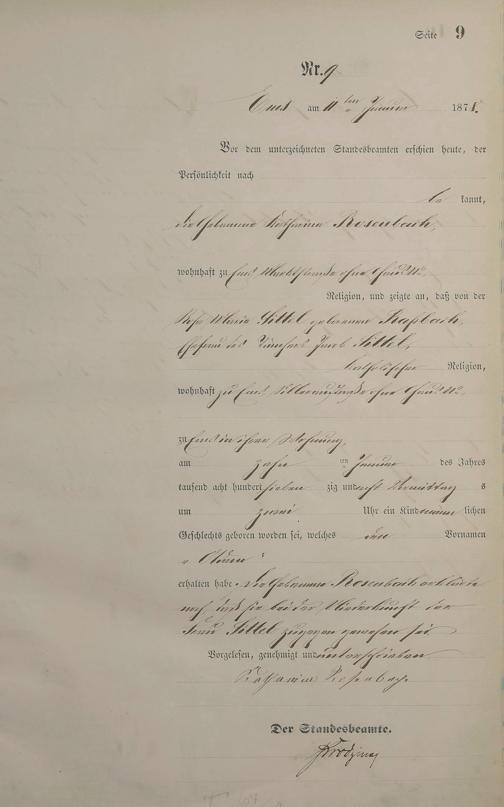 Seite 9
Nr. 9
Ems am 11ten Januar 1878.
Vor dem unterzeichneten Standesbeamten erschien heute, der
Persönlichkeit nach
be kannt,
die Hebamme Katharina Rosenbach,
wohnhaft zu Ems,
Religion, und zeigte an, daß von der
Maria Sittel geborenen
Ehefrau des Jacob Sittel,
katholischer Religion,
wohnhaft zu Ems,
zu Ems in ihrer Wohnung,
am zehn ten Januar des Jahres
tausend acht hundert sieben zig und acht Vormittag s
um zwei Uhr ein Kind lichen
Geschlechts geboren worden sei, welches den Vornamen
erhalten habe. Die Hebamme Rosenbach erklärte
noch, daß sie bei der Niederkunft der
Frau Sittel zugegen gewesen sei
Vorgelesen, genehmigt und unterschrieben
Katharina Rosenbach
Der Standesbeamte.